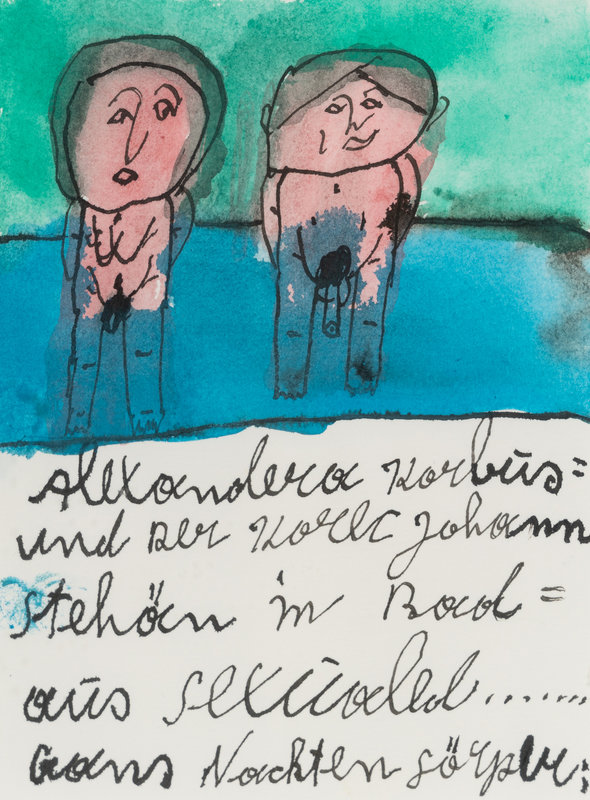 Alexandera Korbus=
und der Korec Johann
stehän im Bad=
aus sexüaled.......
Gans Nackten görper;